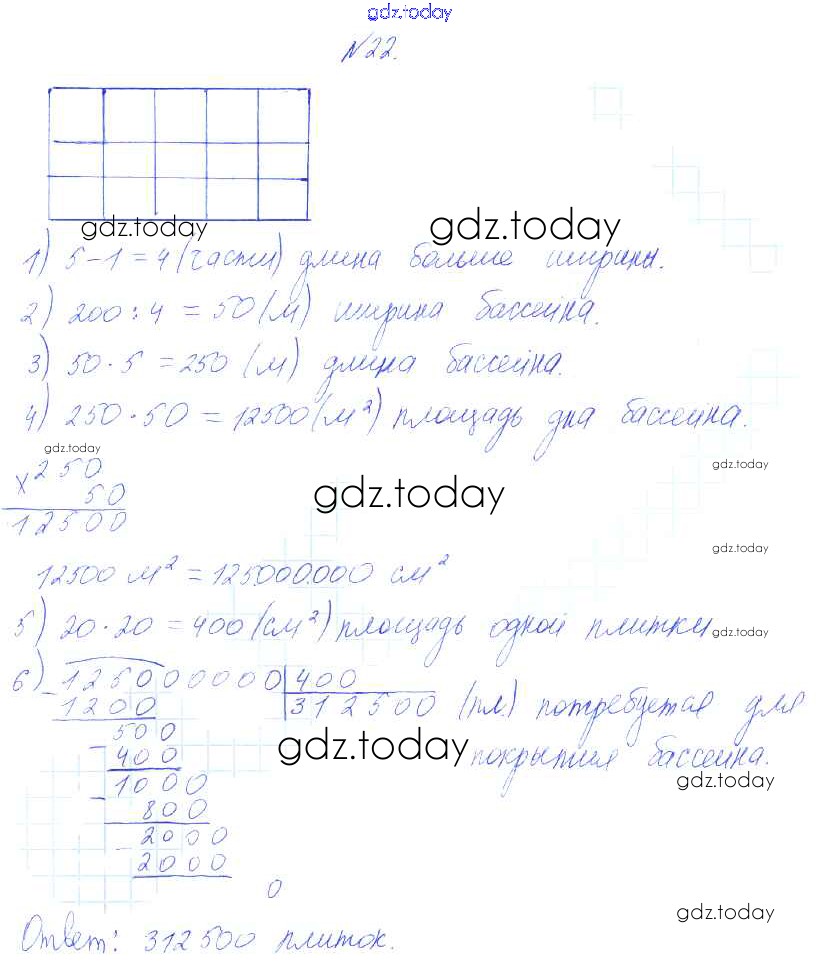 gdz.today
№22.
gdz.today gdz.today
1) 5-1=4 (части) длина больше ширины.
2) 200:4 = 50 (м) ширина бассейна.
3) 50·5 = 250 (м) длина бассейна.
4) 250·50 = 12500 (м²) площадь дна бассейна.
gdz.today
× 250
gdz.today
50
gdz.today
12500
gdz.today
12500 м² = 125000000 см²
5) 20·20 = 400 (см²) площадь одной плитки
gdz.today
6) 1250000000 400
- 1200 312500 (пл.) потребуется для
500 gdz.today покрытия бассейна.
- 400
gdz.today
1000
- 800
2000
- 2000
0
gdz.today
Ответ: 312500 плиток.